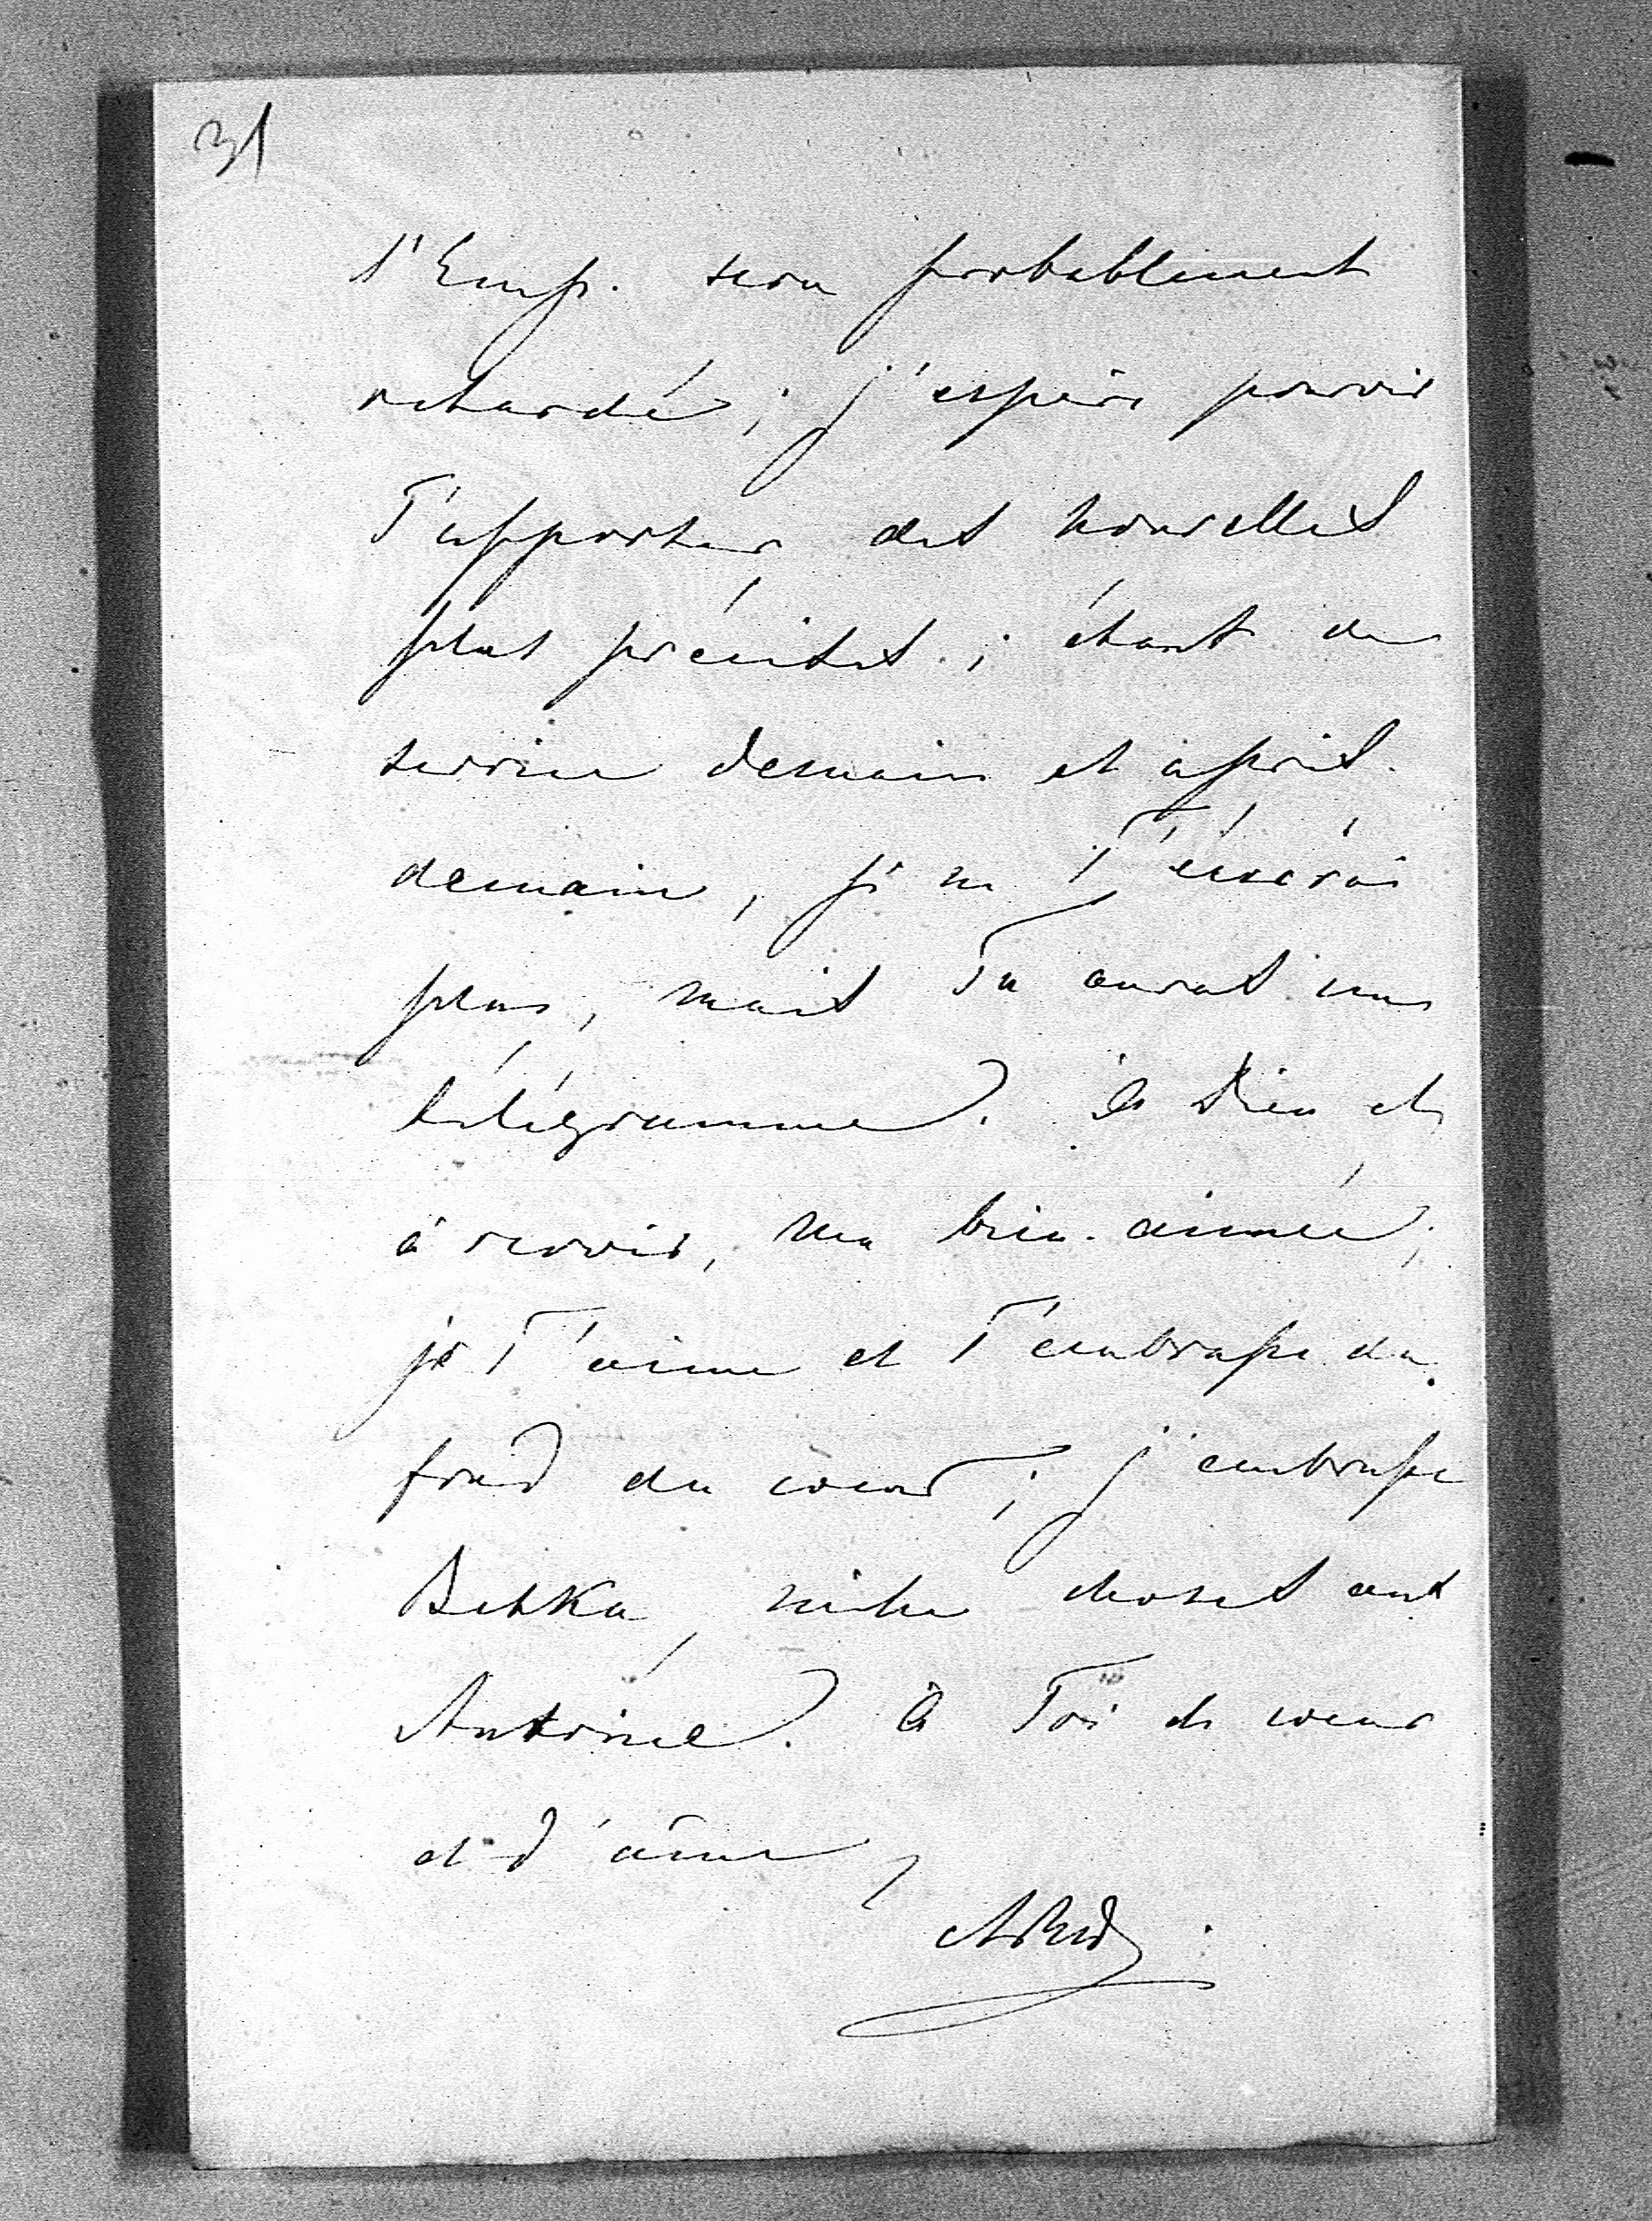 31
l'Emp. sera probablement
retardé ; j'espère pouvoir
T'apporter des nouvelles
plus précises ; étant de
service demain et après-
demain, je ne T'écrirai
plus, mais Tu auras un
télégramme. à Dieu et
à revoir, ma bien-aimée ;
je T'aime et T'embrasse du
fond du coeur ; j'embrasse
Bebka, mille choses aux
Antoine. à Toi de coeur
et d'âme,